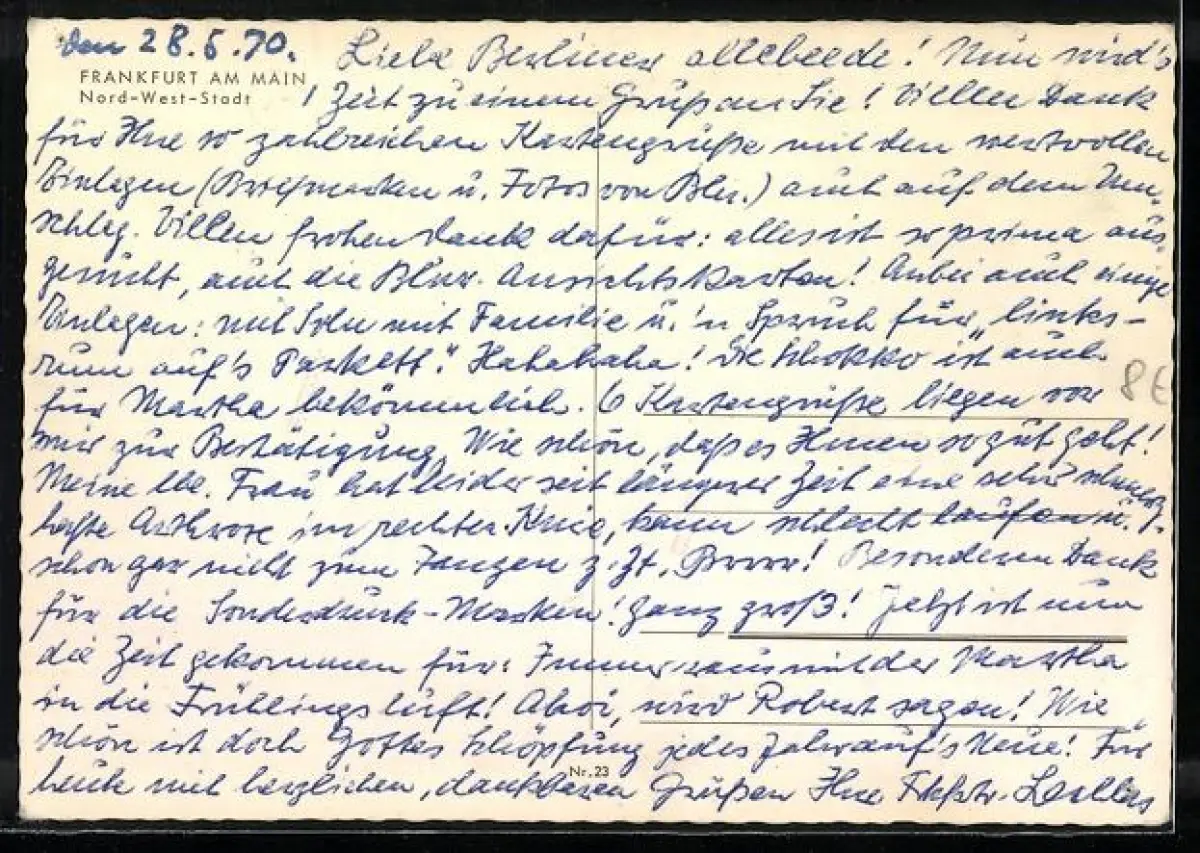 den 28.5.70.
FRANKFURT AM MAIN
Nord-West-Stadt
Liebe Berliner allebeede! Nun wird's
Zeit zu einem Gruß an Sie! Villen Dank
für Ihre so zahlreichen Kartengrüße mit den wertvollen
Einlagen (Briefmarken u. Fotos von Bln.) auch auf dem Um-
schlag. Villen frohen Dank dafür: alles ist so prima aus-
gesucht, auch die Blner. Ansichtskarten! Anbei auch einige
Einlagen: mit Sohn mit Familie u. 'n Spruch für "links-
rum auf's Parkett". Hahahaha! Die Schokko ist auch
für Martha bekömmlich. 6 Kartengrüße liegen vor
8€
mir zur Bestätigung. Wie schön, daß es Ihnen so gut geht!
Meine lbe. Frau hat leider seit längerer Zeit eine sehr schmerz-
hafte Arthrose im rechten Knie, kann schlecht laufen u.
schon gar nicht zum Tanzen z. Zt. Brrrr! Besonderen Dank
für die Sonderdruck-Marken! Ganz groß! Jetzt ist nun
die Zeit gekommen für: Immer raus mit der Martha
in die Frühlingsluft! Ahoi, wird Robert sagen! Wie
schön ist doch Gottes Schöpfung jedes Jahr auf's Neue! Für
heute mit herzlichen, dankbaren Grüßen Ihre
Nr. 23